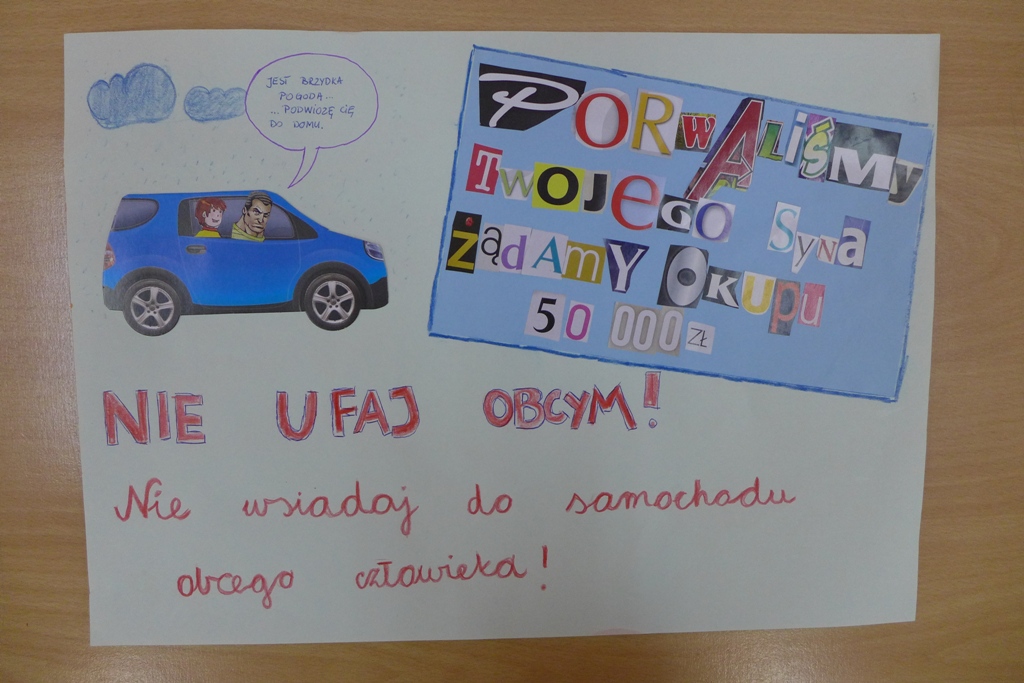 JEST BRZYDKA
POGODA...
...PODWIOZĘ CIĘ
DO DOMU.
PORWALIŚMY
TWOJEGO SYNA
ŻĄDAMY OKUPU
50 000 ZŁ
NIE UFAJ OBCYM!
Nie wsiadaj do samochodu
obcego człowieka!